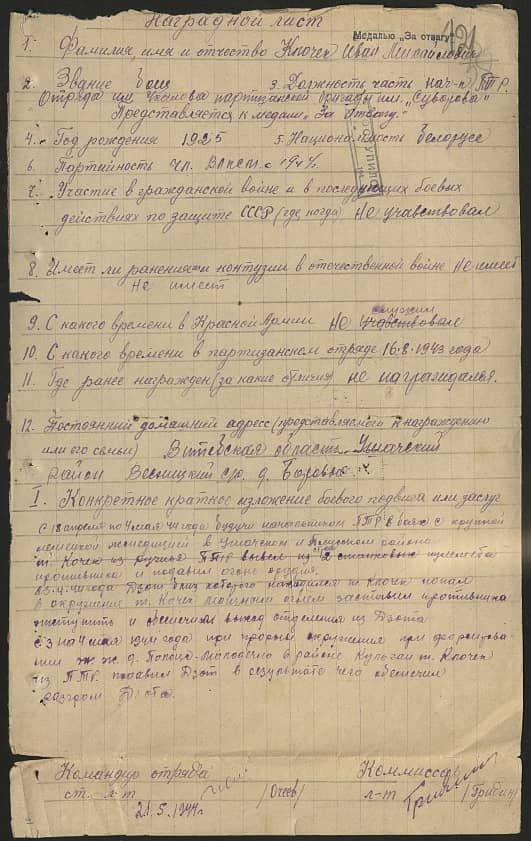 Наградной лист
Медалью „За отвагу"
1. Фамилия, имя и отчество Клочек Иван Михайлович
2. Звание боец 3. Должность часть нач-к ПТР.
Отряда им Чкалова партизанской бригады им. „Суворова"
Представляется к медали „За отвагу."
4. Год рождения 1925 5. Национальность белорусс
6. Партийность чл. ВЛКСМ с 194 г.
7. Участие в гражданской войне и в последующих боевых
действиях по защите СССР (где когда) не учавствовал
8. Имеет ли ранения и контузии в отечественной войне не имеет
не имеет
служил
9. С какого времени в Красной Армии не учавствовал
10. С какого времени в партизанском отряде 16-8-1943 года
11. Где ранее награжден (за какие отличия) не награждался.
12. Постоянный домашний адрес (представляемого к награждению
или его семьи) Витебская область Ушачский
район Весницкий с/с д. Боровые
I. Конкретное краткое изложение боевого подвига или заслуг
С 18 апреля по 4 мая 44 года будучи начальником ПТР в боях с крупной
немецкой экспедицией в Ушачском и Лепельском районах
т. Клочек из ружья ПТР вывел из строя 2 станковых пулемета
противника и подавил огонь орудия.
25.4.44 года Дзот был которого находился и Клочек попал
в окружение т. Клочек мощным огнем заставил противника
отступить и обеспечил выход отделения из Дзота
С 3 на 4 мая 1944 года при прорыве окружения при форсирова
нии ж. ж. д. Полоцк-Молодечно в районе т. Клочек
из ПТР подавил Дзот в результате чего обеспечил
разгром Дзота.
Командир отряда Коммиссар
ст. л-т /Очеев/ л-т /Грибин/
21.5.1944г.